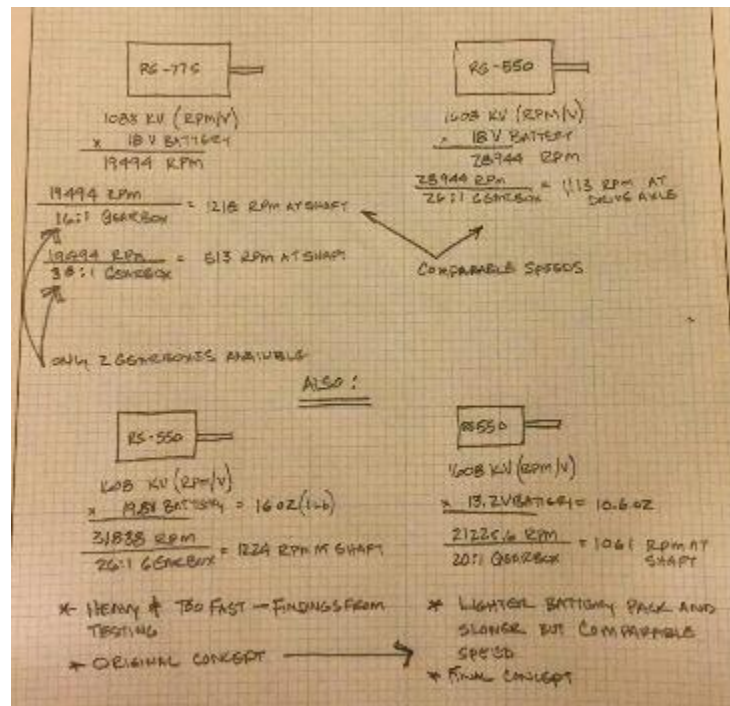 RS-775
1083 KV (RPM/V)
x 18 V BATTERY
19494 RPM
19494 RPM
16:1 GEARBOX
= 1218 RPM AT SHAFT
19494 RPM
38:1 GEARBOX
= 513 RPM AT SHAFT
ONLY 2 GEARBOXES
RS-550
1608 KV (RPM/V)
x 18V BATTERY
28944 RPM
28944 RPM
26:1 GEARBOX
= 1113 RPM AT
DRIVE AXLE
COMPARABLE SPEEDS
ALSO:
RS-550
1608 KV (RPM/V)
x 19.8V BATTERY = 16 OZ (1 lb)
31838 RPM
26:1 GEARBOX
= 1224 RPM AT SHAFT
* HEAVY & TOO FAST - FINDINGS FROM
TESTING
* ORIGINAL CONCEPT
RS550
1608 KV (RPM/V)
x 13.2V BATTERY = 10.6 OZ
21225.6 RPM
20:1 GEARBOX
= 1061 RPM AT
SHAFT
* LIGHTER BATTERY PACK AND
SLOWER BUT COMPARABLE
SPEED
* FINAL CONCEPT